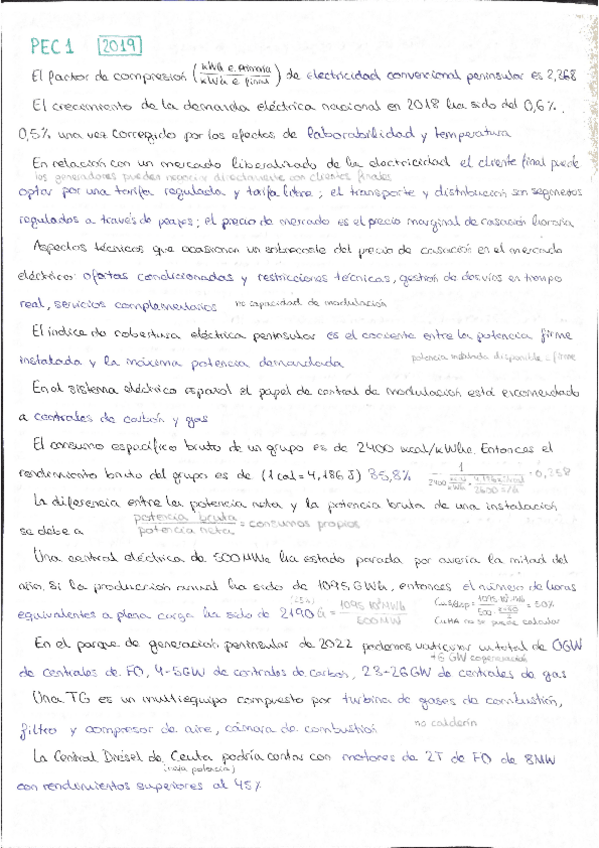 PEC 1 2019
El factor de compresión (kWh e. primaria / kWh e. final) de electricidad convencional peninsular es 2,368
El crecimiento de la demanda eléctrica nacional en 2018 ha sido del 0,6%.
0,5% una vez corregido por los efectos de laborabilidad y temperatura
En relación con un mercado liberalizado de la electricidad el cliente final puede
los generadores pueden negociar directamente con clientes finales
optar por una tarifa regulada y tarifa libre; el transporte y distribución son segmentos
regulados a través de peajes; el precio de mercado es el precio marginal de casación horaria
Aspectos técnicos que ocasionan un sobrecoste del precio de casación en el mercado
eléctrico: ofertas condicionadas y restricciones técnicas, gestión de desvíos en tiempo
real, servicios complementarios no capacidad de modulación
El índice de cobertura eléctrica peninsular es el cociente entre la potencia firme
instalada y la máxima potencia demandada potencia instalada disponible = firme
En el sistema eléctrico español el papel de central de modulación está encomendado
a centrales de carbón y gas
El consumo específico bruto de un grupo es de 2400 kcal/kWhe. Entonces el
rendimiento bruto del grupo es de (1 cal = 4,186 J) 35,8% = 0,358
La diferencia entre la potencia neta y la potencia bruta de una instalación
se debe a potencia bruta / potencia neta = consumos propios
Una central eléctrica de 500MWe ha estado parada por avería la mitad del
año. Si la producción anual ha sido de 1095 GWh, entonces el número de horas
equivalentes a plena carga ha sido de 2190 h = 1095·10³MWh / 500MW = 50%
En el parque de generación peninsular de 2022 podemos vaticinar un total de 0GW
+6 GW cogeneración
de centrales de FO, 4-5GW de centrales de carbón, 23-26GW de centrales de gas
Una TG es un multiequipo compuesto por turbina de gases de combustión,
filtro y compresor de aire, cámara de combustión no calderín
La Central Diésel de Ceuta podría contar con motores de 2T de FO de 8MW
(nova potencia)
con rendimientos superiores al 45%